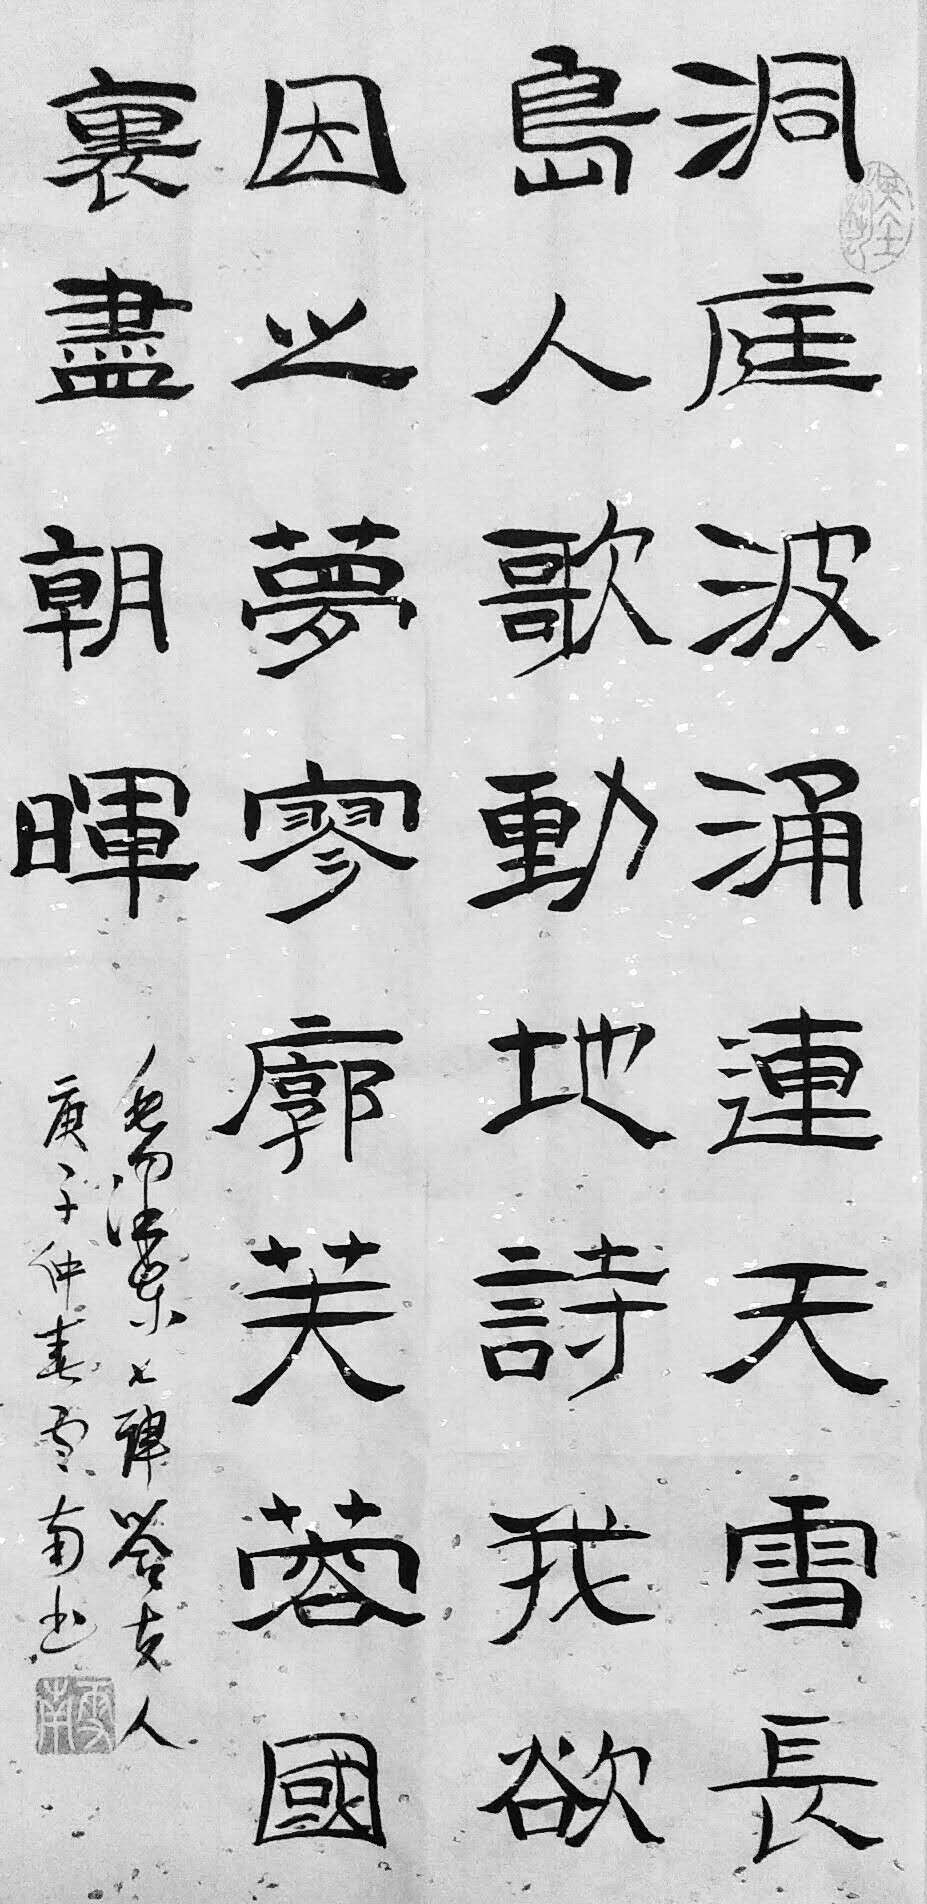 洞庭波涌連天雪長
島人歌動地詩我欲
因之夢寥廓芙蓉國
裏盡朝暉
毛澤東七律答友人
庚子仲春雪南书
雪南